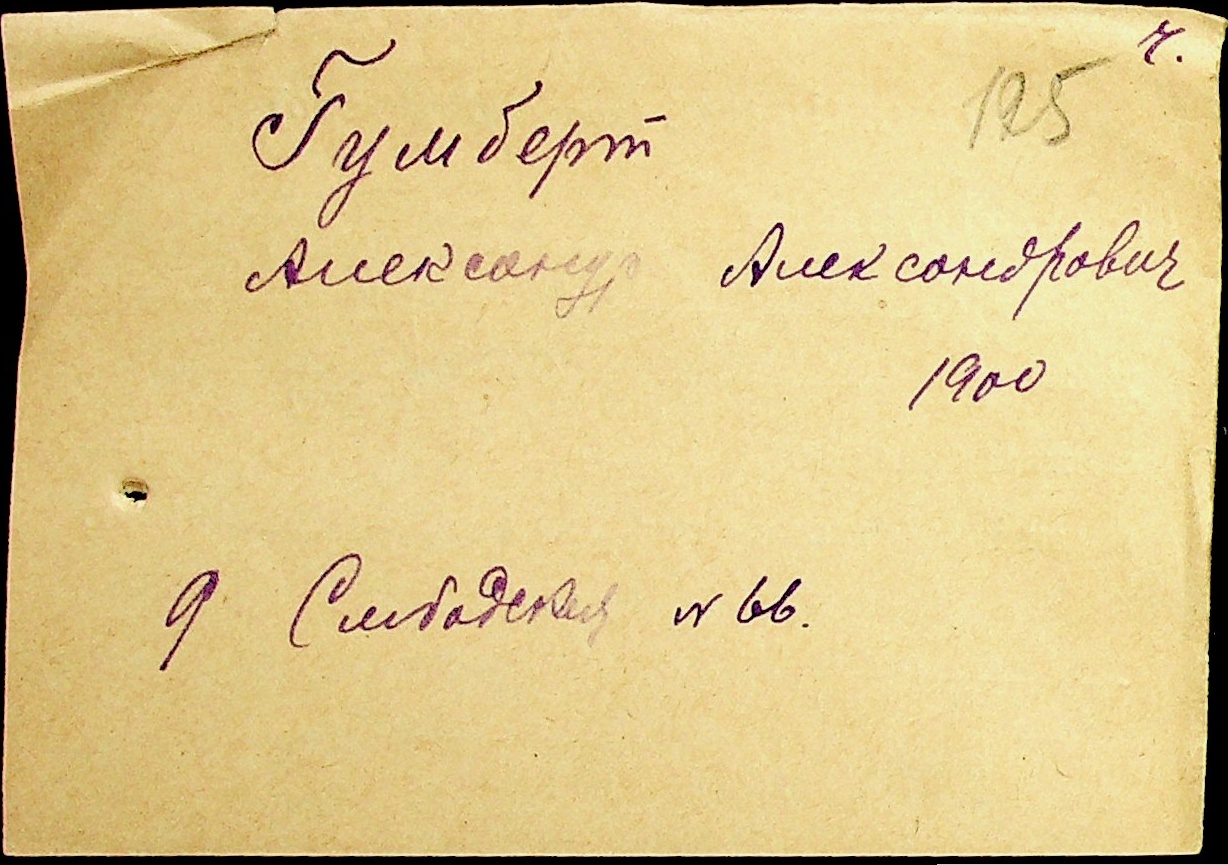 ч.
125
Гумберт
Александр Александрович
1900
9 Слободская № 66.